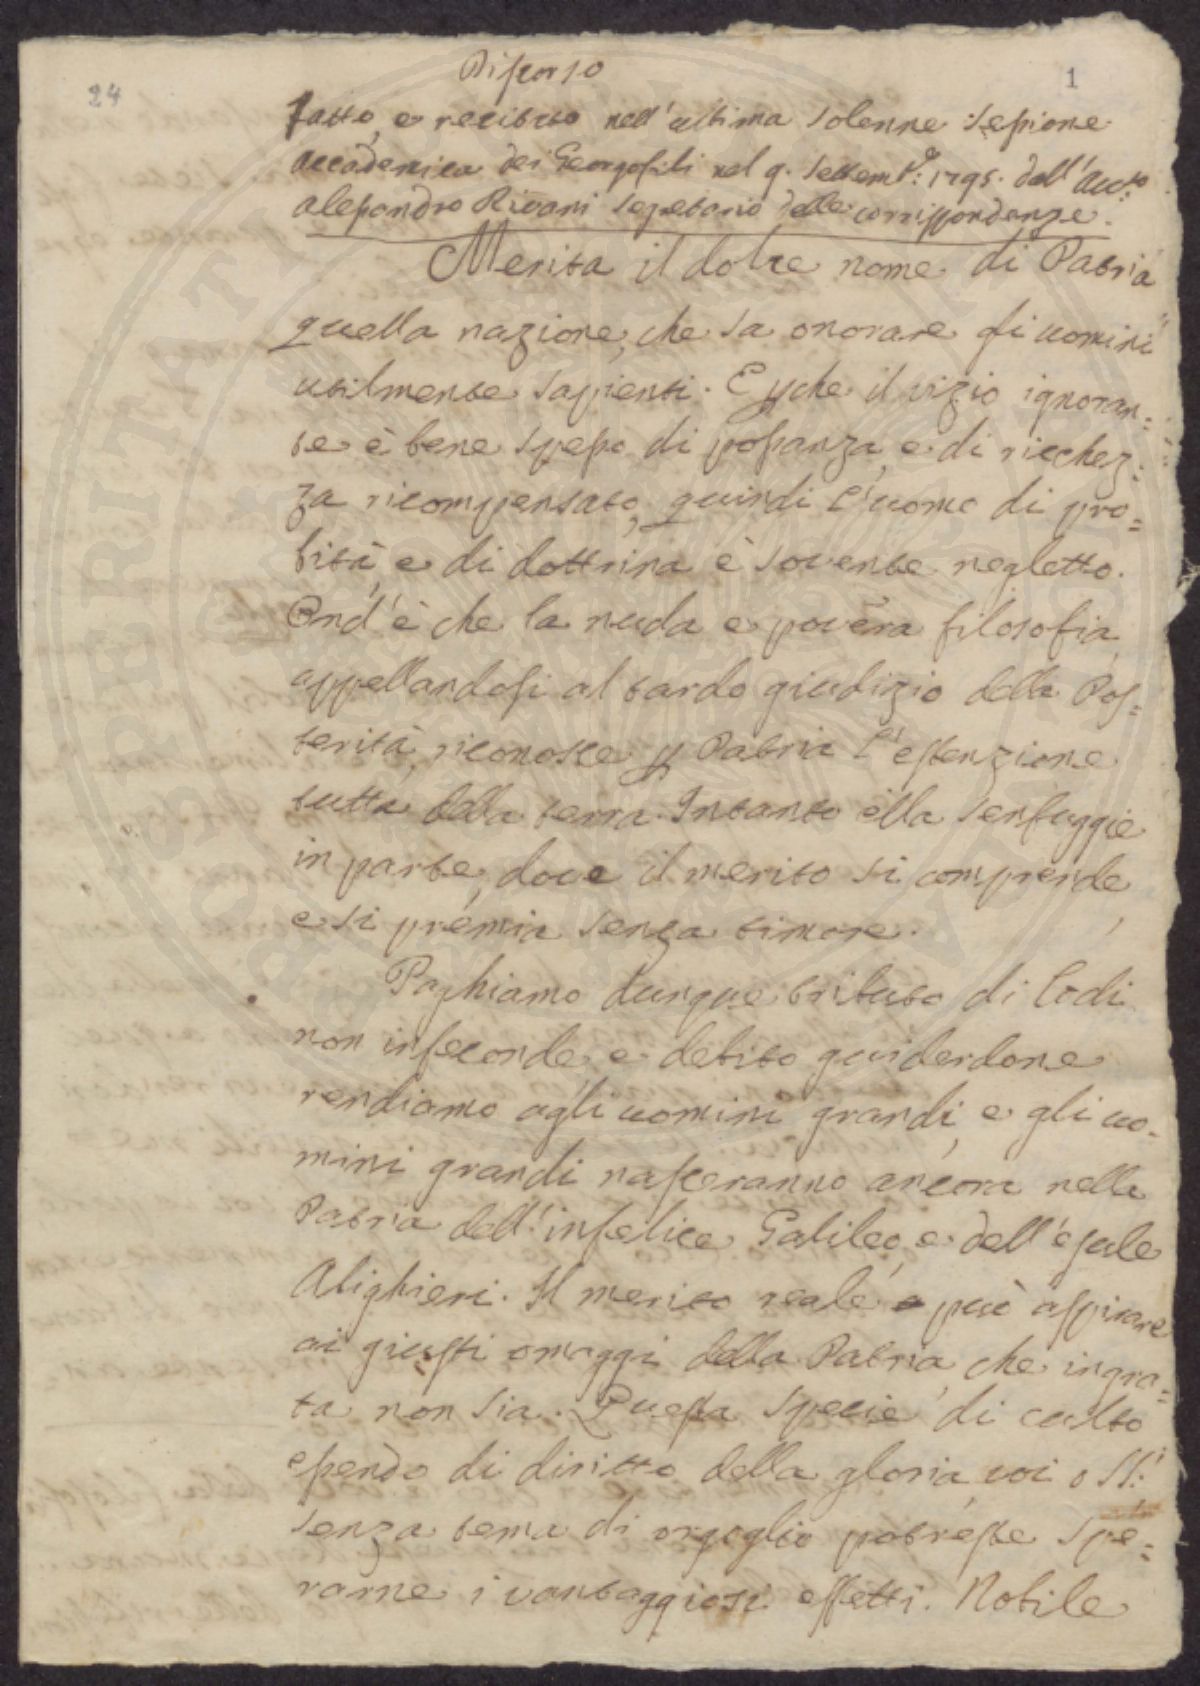 24
1
Discorso
fatto, e recitato nell'ultima solenne sessione
accademica dei Georgofili nel 9. Settem.e: 1795. dall'Avv.to
Alessandro Rivani Segretario delle corrispondenze.
Merita il dolce nome di Patria
quella nazione, che sa onorare gli uomini
utilmente sapienti. E pche il vizio ignoran-
te è bene spesso di possanza, e di ricchez-
za ricompensato, quindi l'uomo di pro=
bità, e di dottrina è sovente negletto.
Ond'è che la nuda e povera filosofia,
appellandosi al tardo giudizio della Pos=
terità, riconosce p Patria l'estenzione
tutta della terra. Intanto ella sen fuggie
in parte, dove il merito si comprende,
e si premia senza timore.
Paghiamo dunque tributo di lodi
non infeconde, e debito guiderdone
rendiamo agli uomini grandi, e gli uo-
mini grandi nasceranno ancora nella
Patria dell'infelice Galileo, e dell'esule
Alighieri. Il merito reale può aspirare
ai giusti omaggi della Patria, che ingra=
ta non sia. Questa specie di culto
essendo di diritto della gloria, voi o SS:ri
senza tema di orgoglio potreste spe=
rarne i vantaggiosi effetti. Nobile